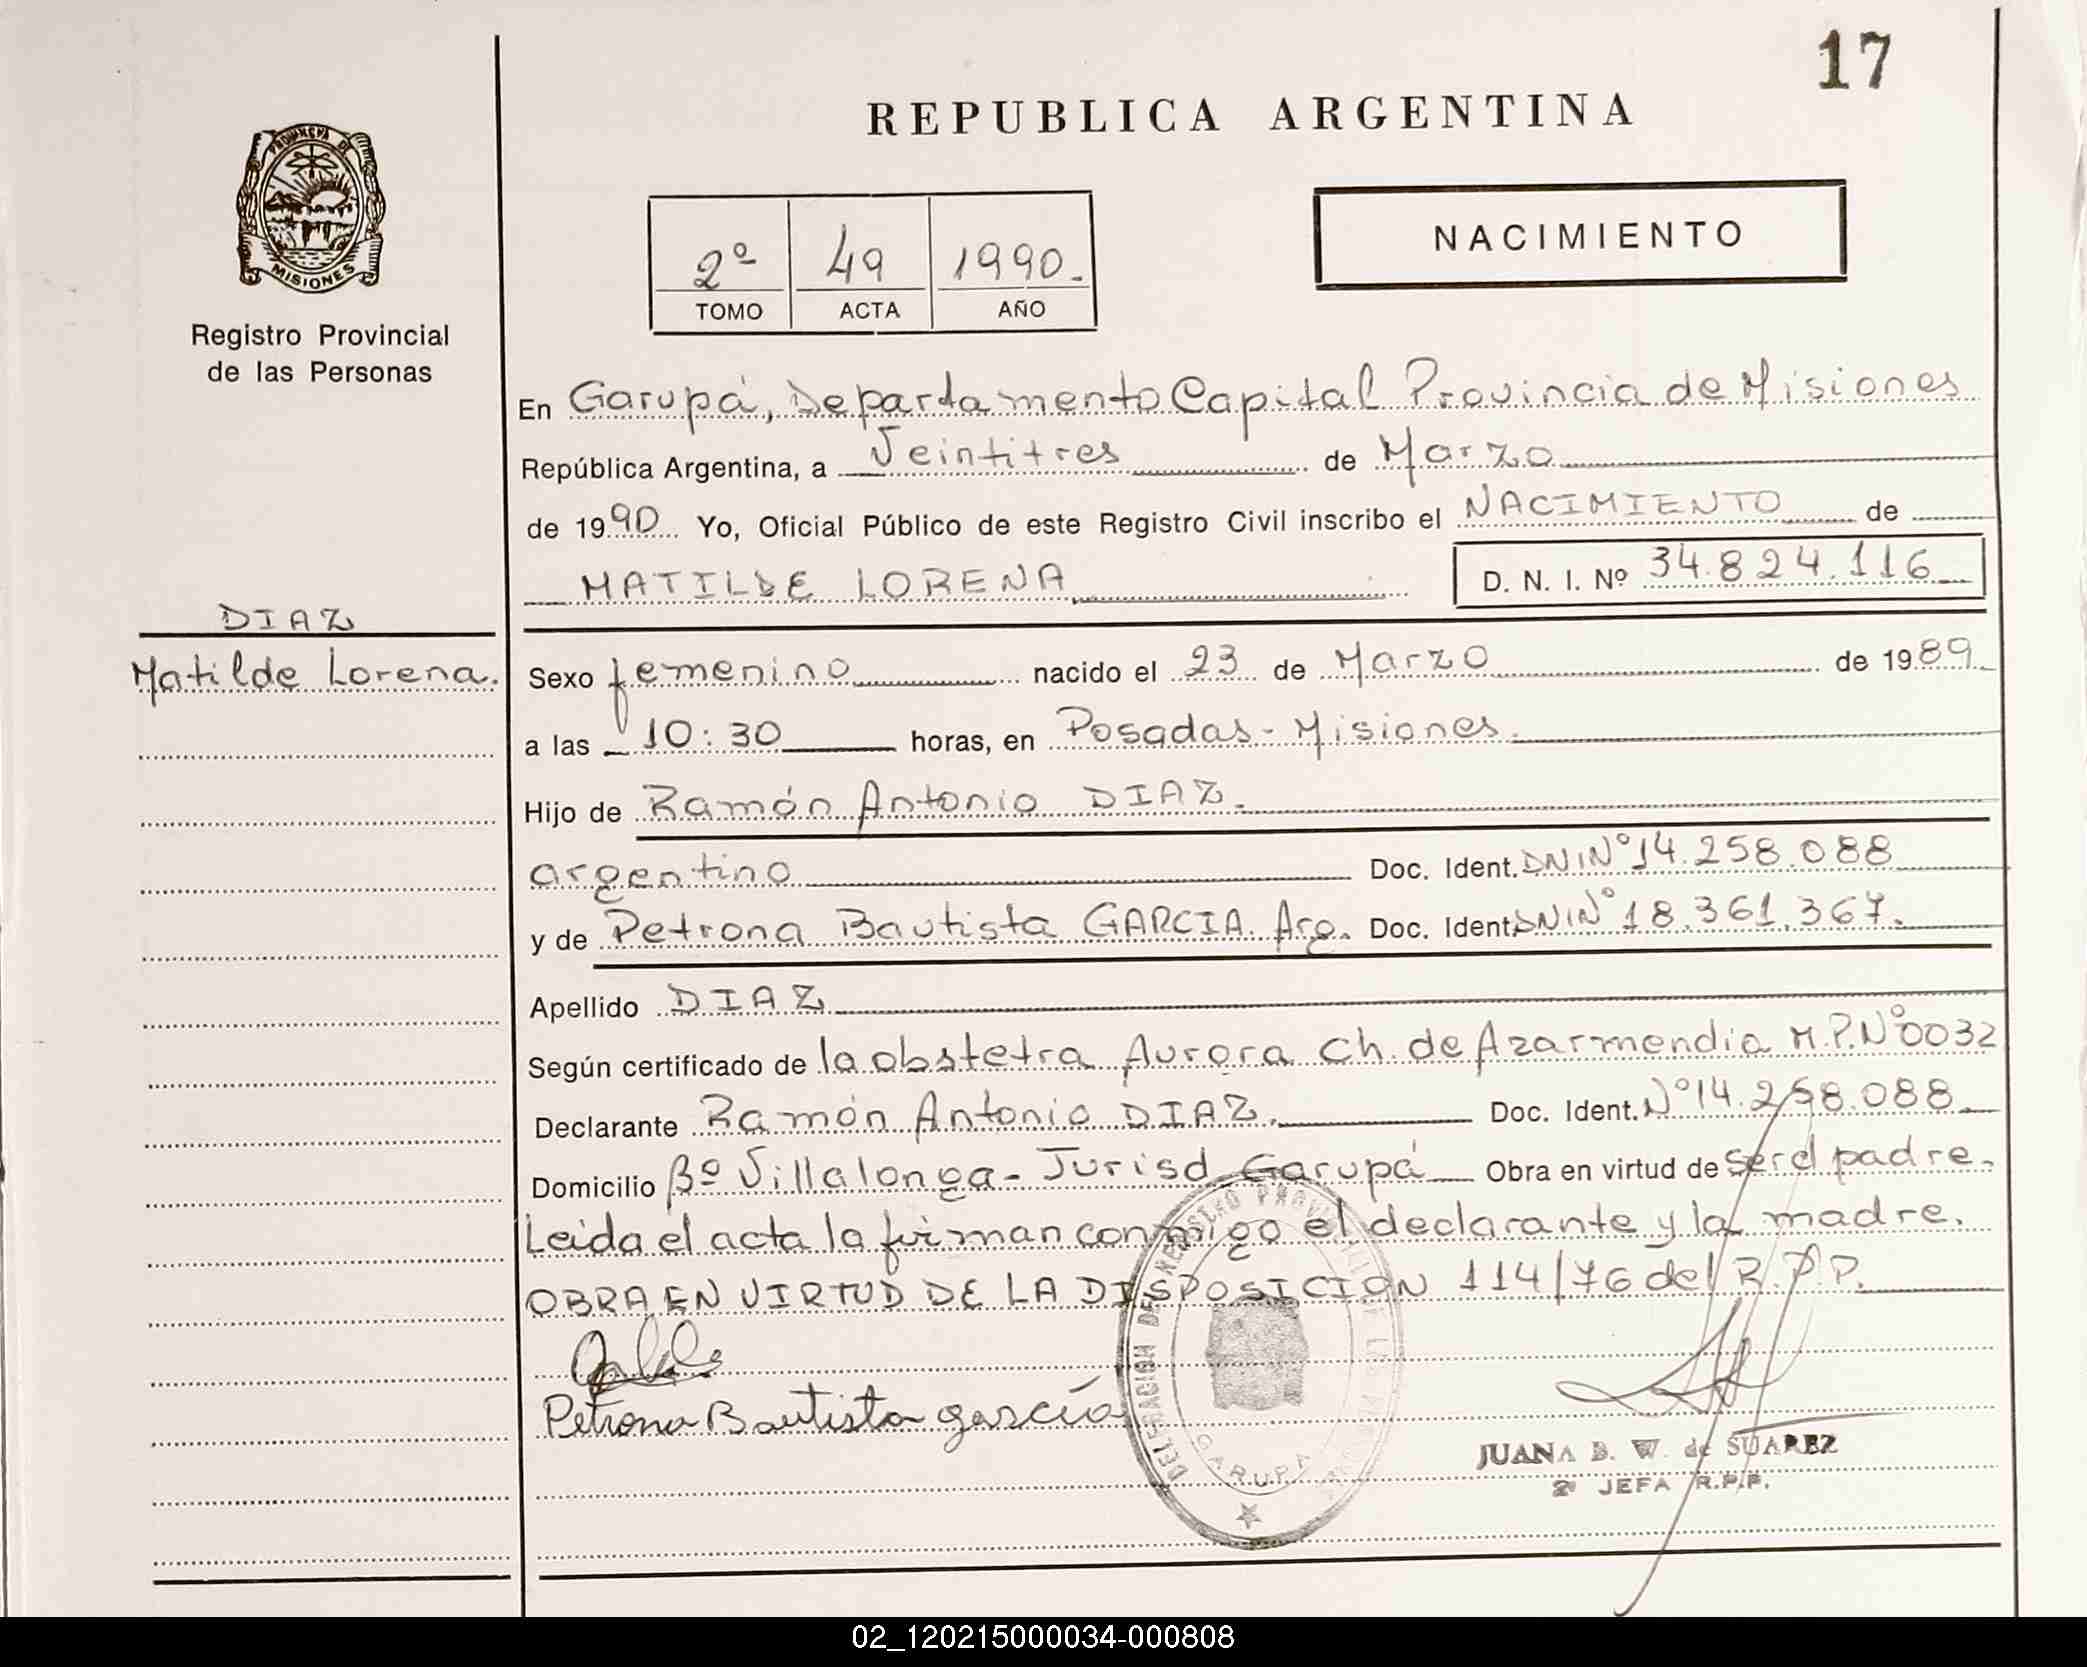 17
REPUBLICA ARGENTINA
PROVINCIA DE
MISIONES
Registro Provincial
de las Personas
2º 49 1990.
TOMO ACTA AÑO
NACIMIENTO
En Garupá, Departamento Capital Provincia de Misiones
República Argentina, a Veintitres de Marzo
de 1990 Yo, Oficial Público de este Registro Civil inscribo el NACIMIENTO de
MATILDE LORENA D. N. I. Nº 34.824.116
DIAZ
Matilde Lorena.
Sexo femenino nacido el 23 de Marzo de 1989
a las 10:30 horas, en Posadas-Misiones.
Hijo de Ramón Antonio DIAZ.
argentino Doc. Ident. DNINº14.258.088
y de Petrona Bautista GARCIA. Arg. Doc. Ident. DNINº18.361.367.
Apellido DIAZ
Según certificado de la obstetra Aurora Ch. de Azarmendia M.P.Nº0032
Declarante Ramón Antonio DIAZ. Doc. Ident. Nº14.258.088
Domicilio Bº Villalonga-Jurisd Garupá Obra en virtud de ser el padre.
Leida el acta la firman conmigo el declarante y la madre.
OBRA EN VIRTUD DE LA DISPOSICION 114/76 del R.P.P.
Petrona Bautista garcía
DELEGACION DEL REGISTRO PROVINCIAL DE LAS
GARUPA
JUANA B. W. de SUAREZ
2º JEFA R.P.P.
02_120215000034-000808